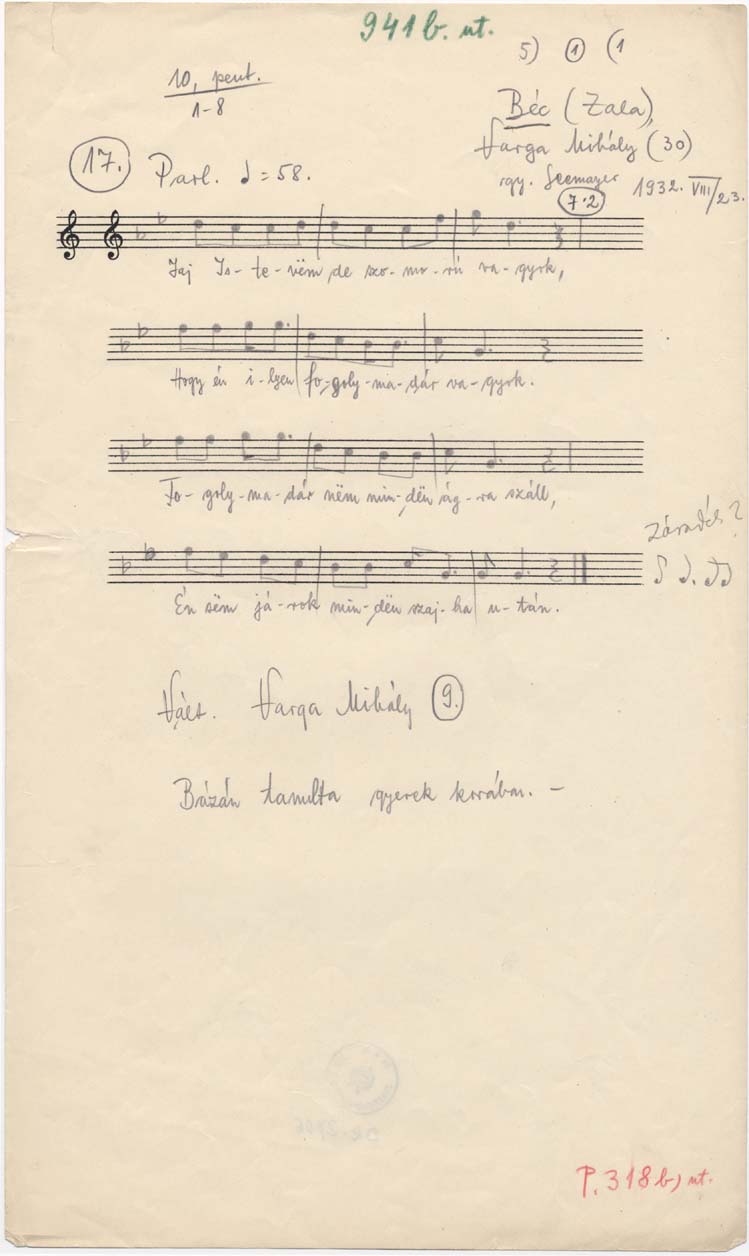 941 b. ut.
5) ① (1
10, pent.
1-8
Béc (Zala),
Varga Mihály (30)
gy. Seemayer 1932. VIII/23.
7·2
17. Parl. ♩ = 58.
Jaj Is-te-nëm de szo-mo-rú va-gyok,
Hogy én i-lyen fo-goly-ma-dár va-gyok.
Fo-goly-ma-dár nëm min-dën ág-ra száll,
Én sëm já-rok min-dën szaj-ha u-tán.
Záradék?
Vált. Varga Mihály 9.
Bázán tanulta gyerek korában. –
P. 318 b) ut.